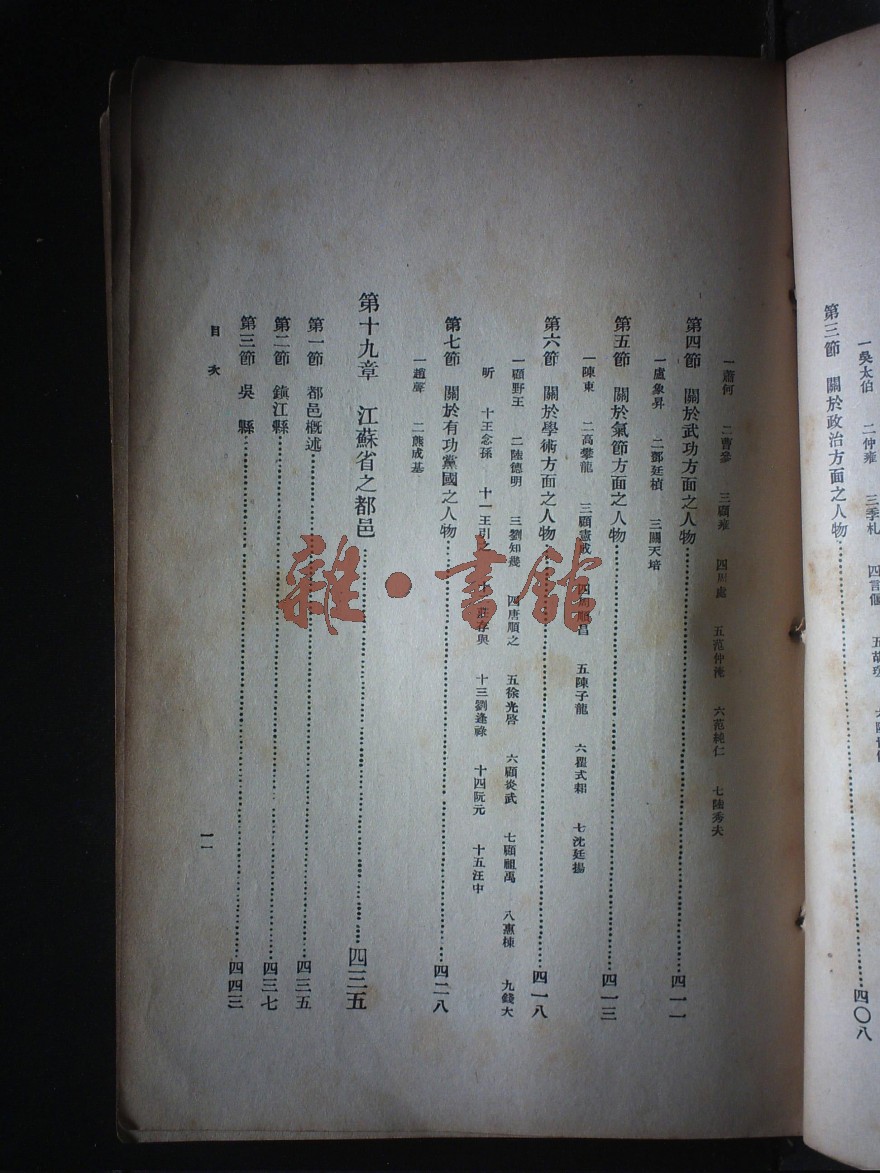 第三節　關於政治方面之人物……四〇八
一吳太伯　二仲雍　三季札　四言偃
一蕭何　二曹參　三顧雍　四周處　五范仲淹　六范純仁　七陸秀夫
第四節　關於武功方面之人物……四一一
一盧象昇　二鄧廷楨　三關天培
第五節　關於氣節方面之人物……四一三
一陳東　二高攀龍　三顧憲成　四周順昌　五陳子龍　六瞿式耜　七沈廷揚
第六節　關於學術方面之人物……四一八
一顧野王　二陸德明　三劉知幾　四唐順之　五徐光啓　六顧炎武　七顧祖禹　八惠棟　九錢大
昕　十王念孫　十一王引之　莊存與　十三劉逢祿　十四阮元　十五汪中
第七節　關於有功黨國之人物……四二八
一趙聲　二熊成基
第十九章　江蘇省之都邑……四三五
第一節　都邑概述……四三五
第二節　鎭江縣……四三七
第三節　吳縣……四四三
目次
一一
雜·書館